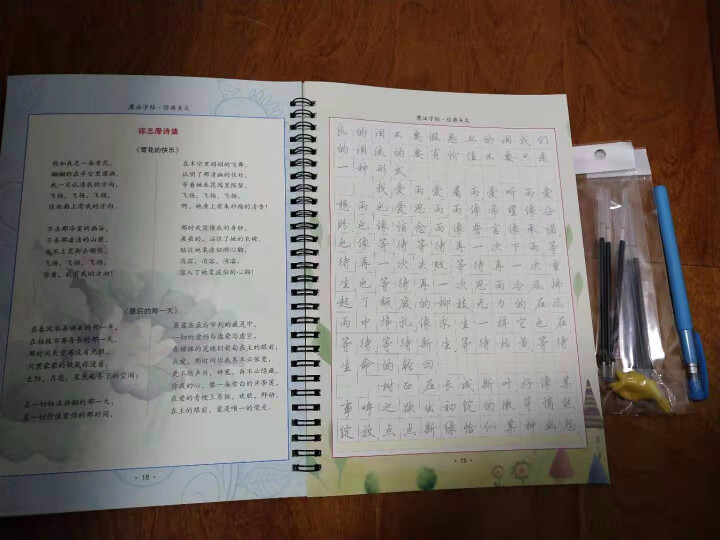 魔法字帖·经典美文
徐志摩诗集
《雪花的快乐》
假如我是一朵雪花,
翩翩的在半空里潇洒,
我一定认清我的方向,
飞扬,飞扬,飞扬,
这地面上有我的方向。
不去那冷寞的幽谷,
不去那凄清的山麓,
也不上荒街去惆怅,
飞扬,飞扬,飞扬,
你看,我有我的方向!
在半空里娟娟的飞舞,
认明了那清幽的住处,
等着她来花园里探望,
飞扬,飞扬,飞扬,
啊,她身上有朱砂梅的清香!
那时我凭借我的身轻,
盈盈的,沾住了她的衣襟,
贴近她柔波似的心胸,
消溶,消溶,消溶,
溶入了她柔波似的心胸!
《最后的那一天》
在春风不再回来的那一年,
在枯枝不再青条的那一天,
那时间天空再没有光照,
只黑蒙蒙的妖氛弥漫着,
太阳,月亮,星光死去了的空间;
在一切标准推翻的那一天,
在一切价值重估的那时间,
暴露在最后审判的威灵中,
一切的虚伪与虚荣与虚空,
赤裸裸的灵魂们匍匐在主的跟前;
我爱,那时间你我再不必张皇,
更不须声诉,辨冤,再不必隐藏,
你我的心,像一朵雪白的并蒂莲,
在爱的青梗上秀挺,欢欣,鲜妍,
在主的跟前,爱是唯一的荣光。
·18·
魔法字帖·经典美文
的泪不要假惡丑的泪我们
的泪流的要有价值不要只是
一种形式
我爱雨爱看雨爱听雨爱
想雨也爱思雨雨像希望像
也像信念雨像誓言像承诺
也像等待等待再一次下雨等
待再一次失败等待再一次重
生也等待再一次思雨冷风拂
起了额度的柳枝无力的在风
雨中挣扎像求生一样它也在
等待等待新生等待枯黄等待
生命的轮回
树正在长成新叶好像某
事啐之欲出初绽的嫩芽悄然
绽放点点新绿恰似某种幽怨
·19·